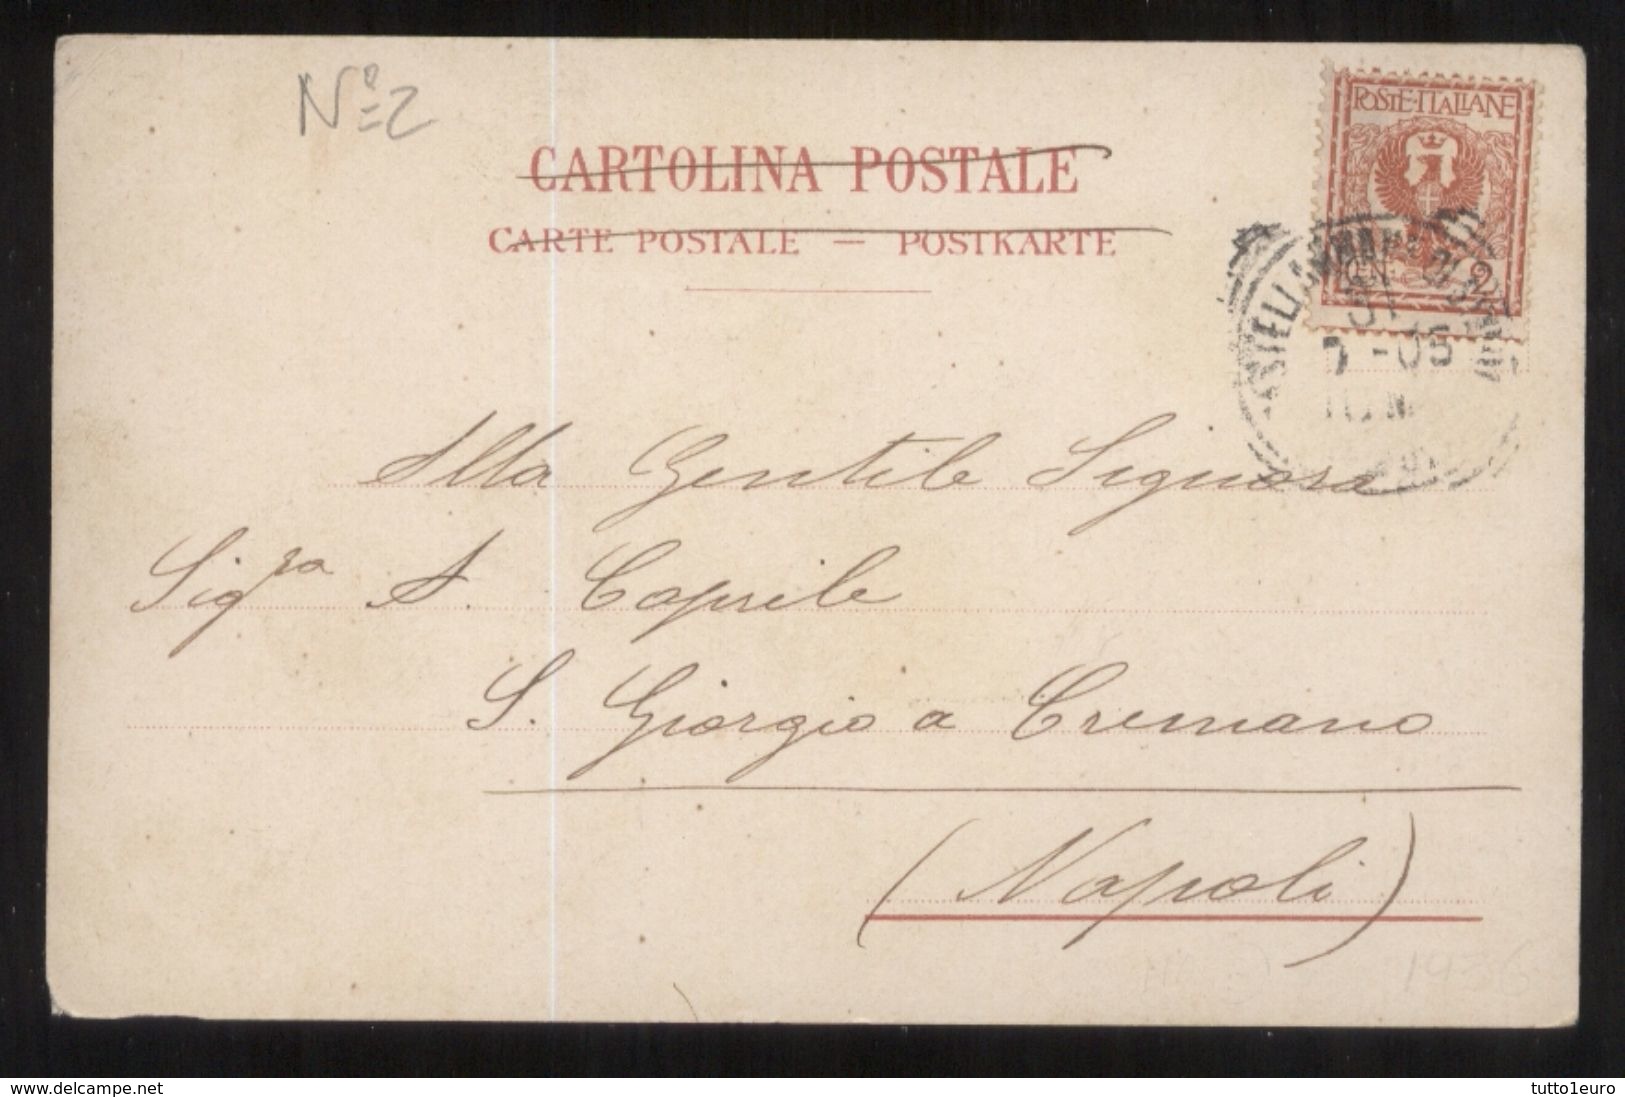 Nº=2
CARTOLINA POSTALE
CARTE POSTALE — POSTKARTE
POSTE·ITALIANE
CEN. 2
31
7 -05
Alla Gentile Signora
Sig.ra A. Caprile
S. Giorgio a Cremano
(Napoli)
1936
delcampe.net
tutto1euro